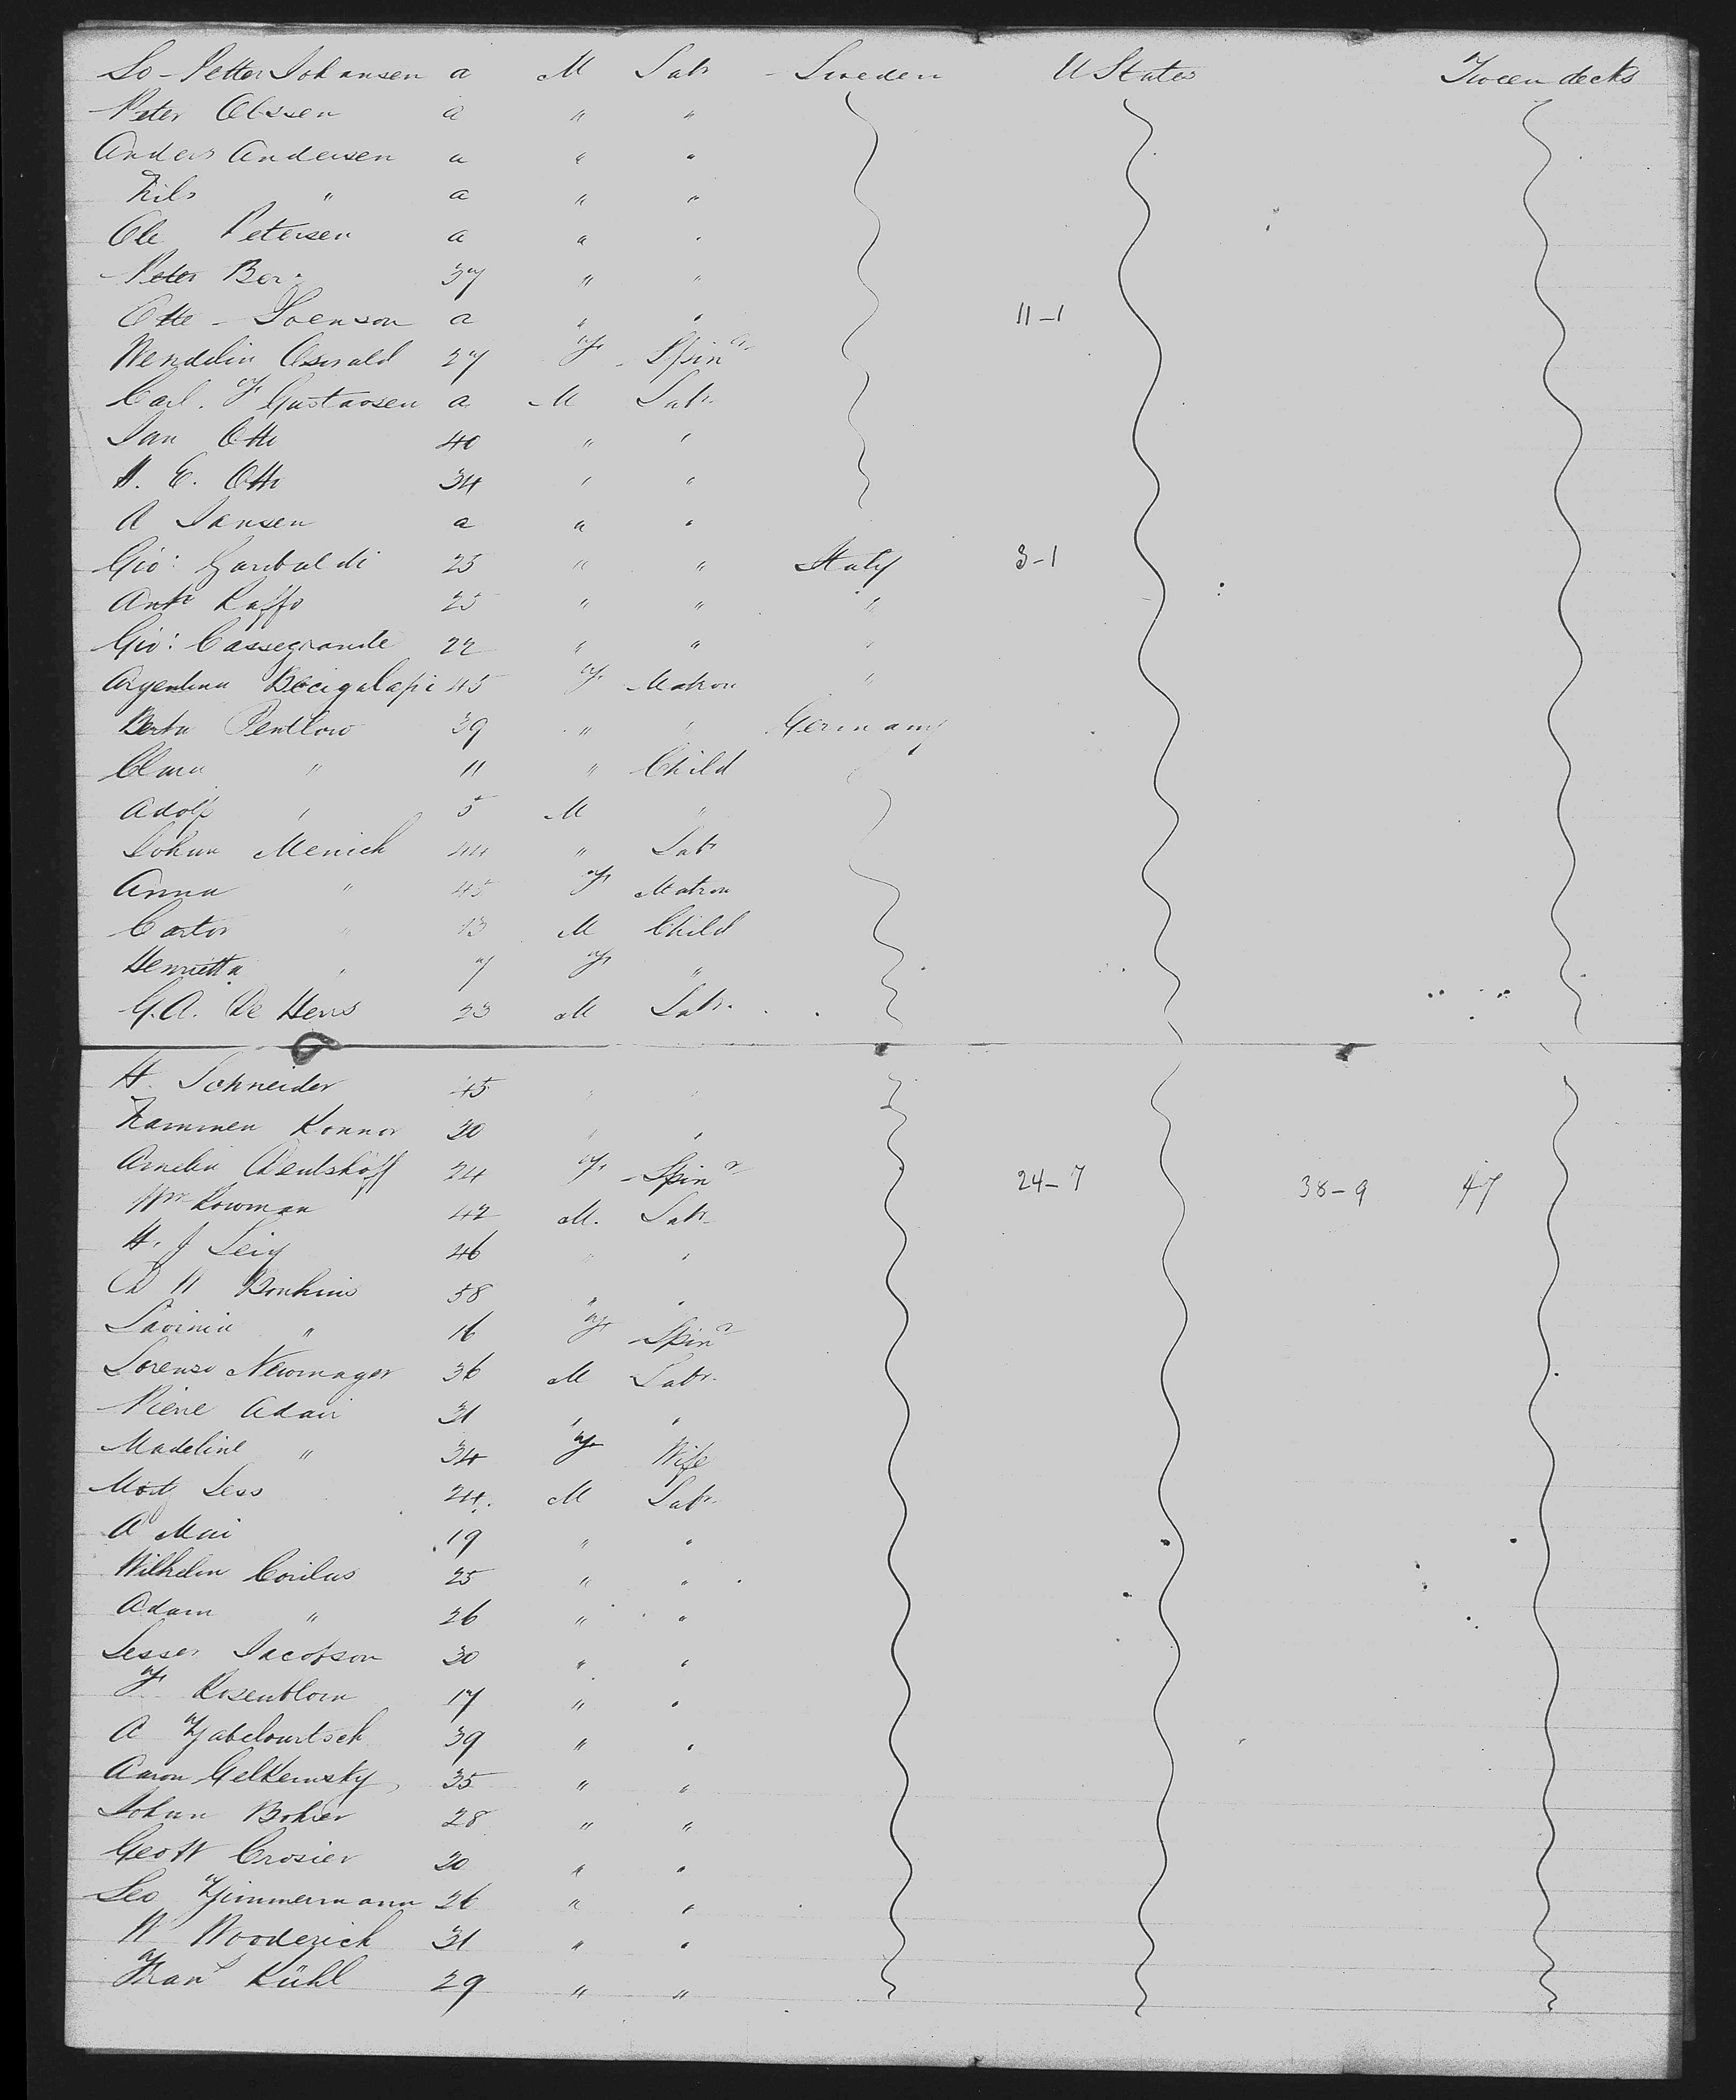 So-Petter Johansen a M Labr Sweden U States Tween decks
Peter Olssen a " "
Anders Andersen a " "
Nils " a " "
Ole Petersen a " "
Peter Ber 37 " "
Otte Svenson a " " 11-1
Wendelin Oswald 27 F Spinr
Carl. F Gustavsen a M Labr
Jan Otto 40 " "
H. E. Otto 34 " "
A Jansen a " "
Gio: Garibaldi 25 " " Italy 3-1
Anto Raffo 25 " " "
Gio: Cassegrande 22 " " "
Argentina Bacigalapi 45 F Matron "
Berta Pentlow 39 " " Germany
Clara " 11 " Child
Adolf " 5 M "
Johan Menich 44 " Labr
Anna " 45 F Matron
Castor " 13 M Child
Henrietta " 7 F "
G.A. De Herrs 23 M Labr
H. Schneider 45 " "
Konnor 30 " "
Amelia 24 F Spinr 24-7 38-9 47
Wm Rowman 42 M. Labr
H. J Leig 46 " "
58 " "
Lavinia " 16 F Spinr
Lorenso Newmayer 36 M Labr
Pierre Adair 31 " "
Madeline " 34 F Wife
Less 24. M Labr
A Mai 19 " "
Wilhelm Corilus 25 " "
Adam " 26 " "
Lesser Jacobson 30 " "
F Rosenblom 17 " "
A Zabelowitsch 39 " "
Aaron Gelkemsky 35 " "
Johan Bohrer 28 " "
Geo W Crosier 30 " "
Leo Zimmermann 26 " "
W Wooderich 31 " "
Franz Kühl 29 " "